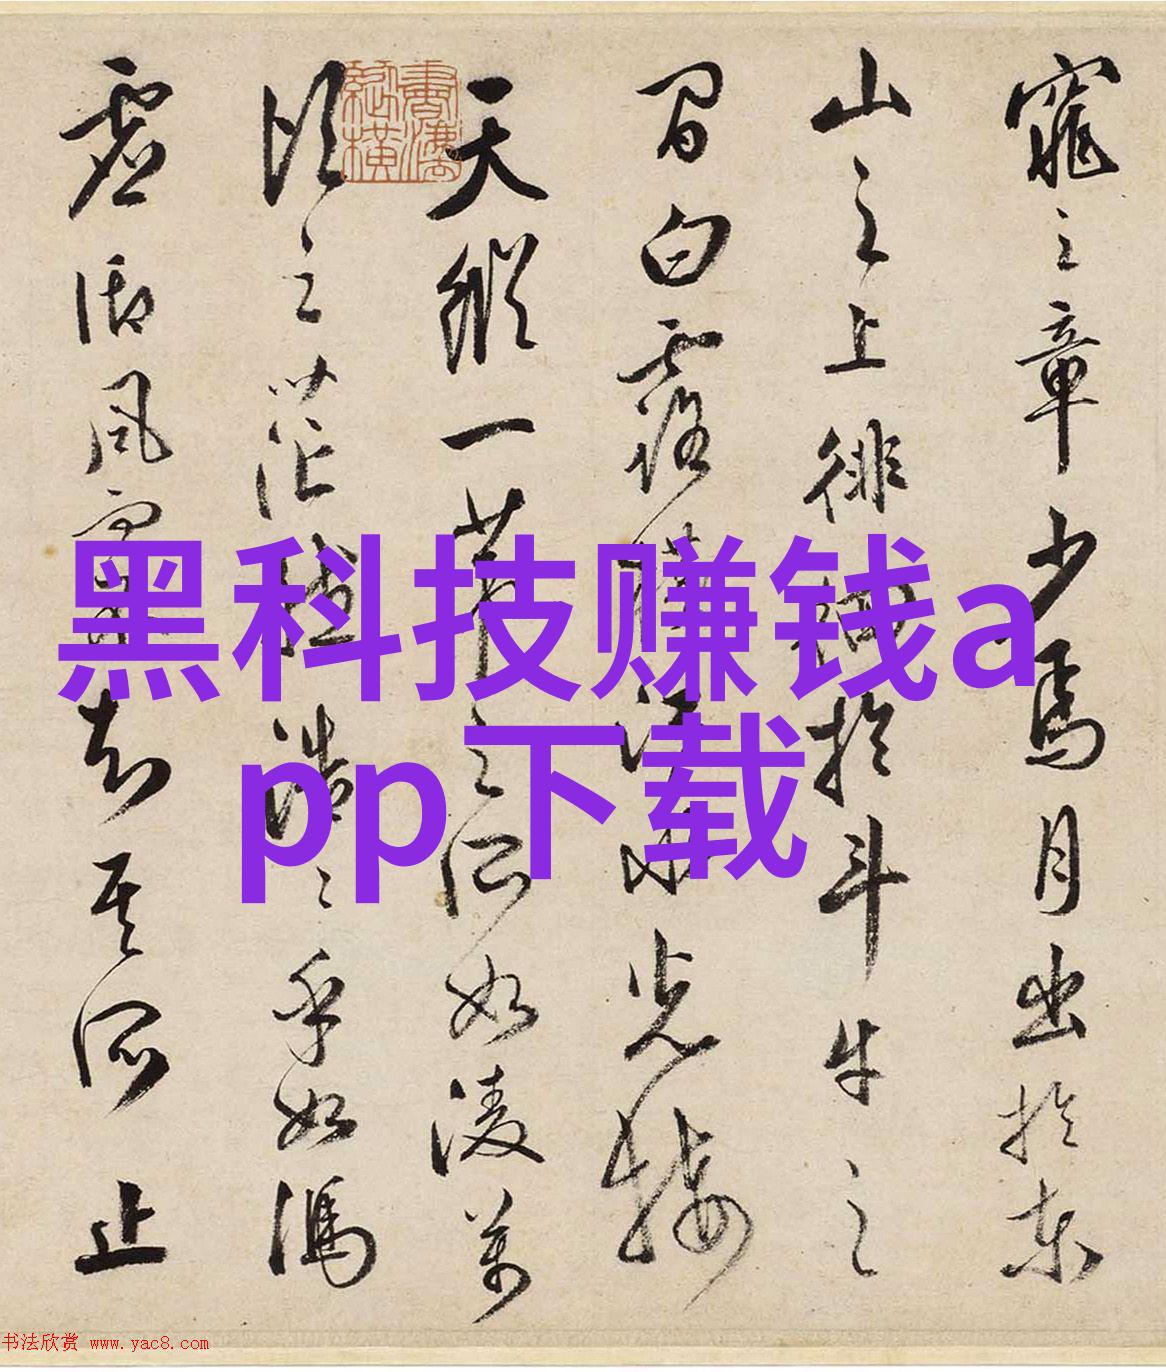 窕之章少焉月出於東
山之上徘徊於斗牛之
間白露横江水光接
天縱一葦之所如陵萬
頃之茫然浩〻乎如馮
虛御風而不知其所止
黑科技赚钱a
pp下载
书法欣赏 www.yac8.com